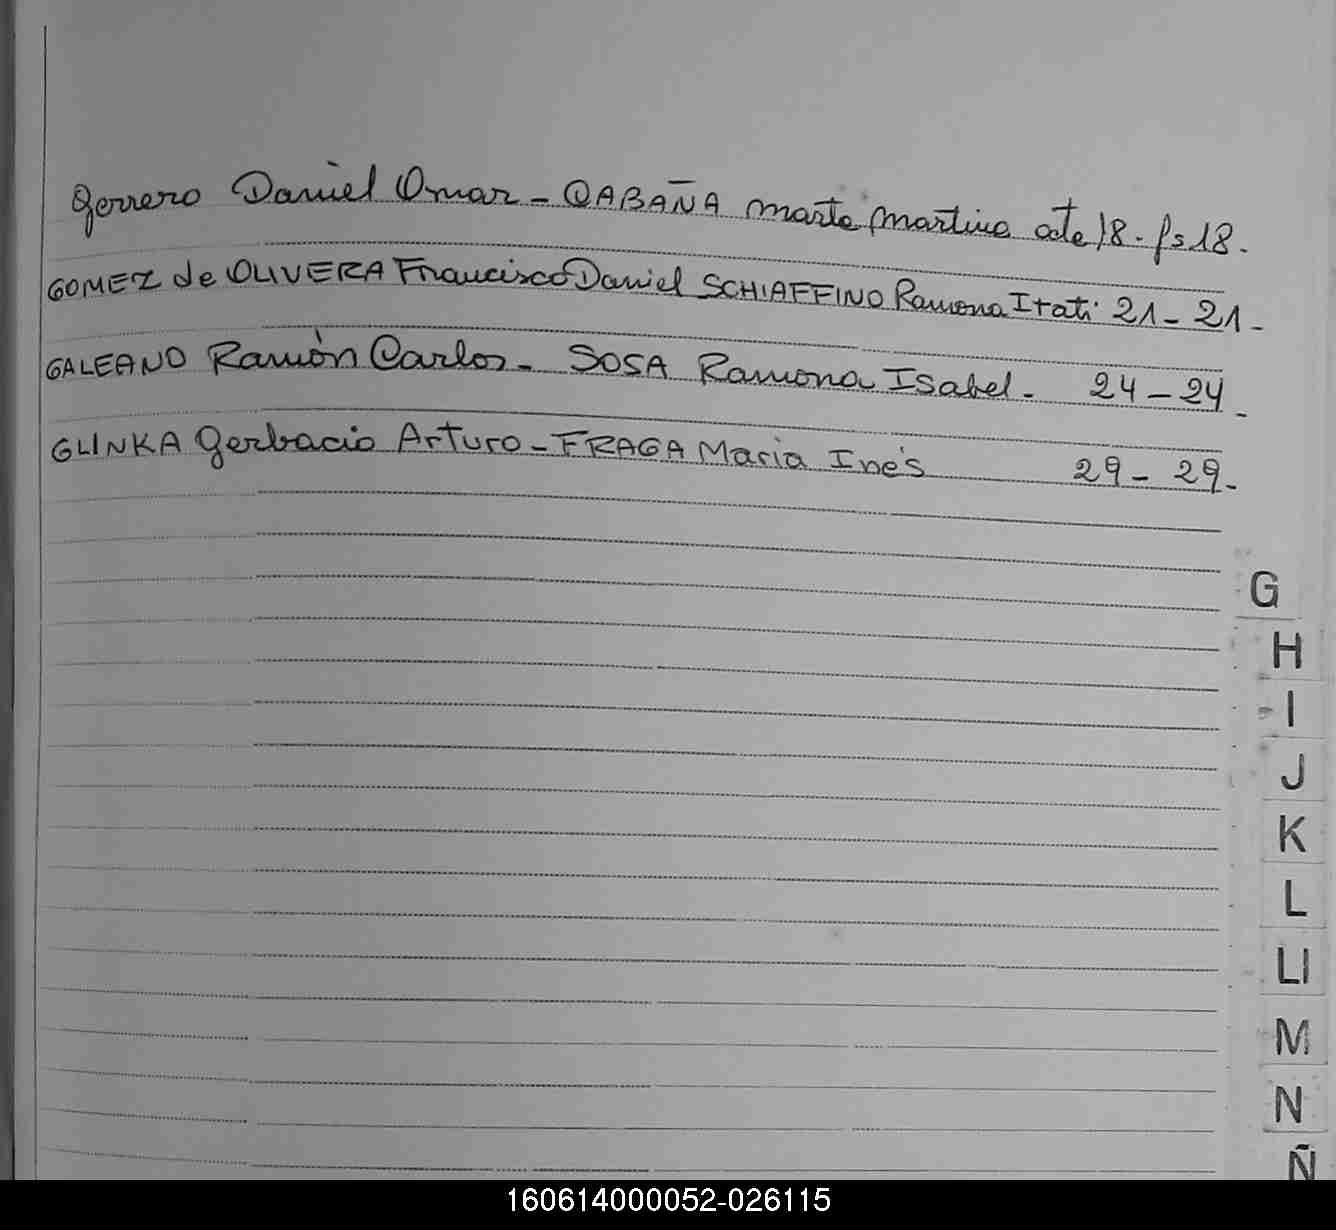 Gerrero Daniel Omar - CABAÑA Marta Martina acta 18. fs 18.
GOMEZ de OLIVERA Francisco Daniel SCHIAFFINO Ramona Itatí 21 - 21 -
GALEANO Ramón Carlos - SOSA Ramona Isabel. 24 - 24 -
GLINKA Gerbacio Arturo - FRAGA Maria Inés 29 - 29 -
G
H
I
J
K
L
Ll
M
N
Ñ
160614000052-026115